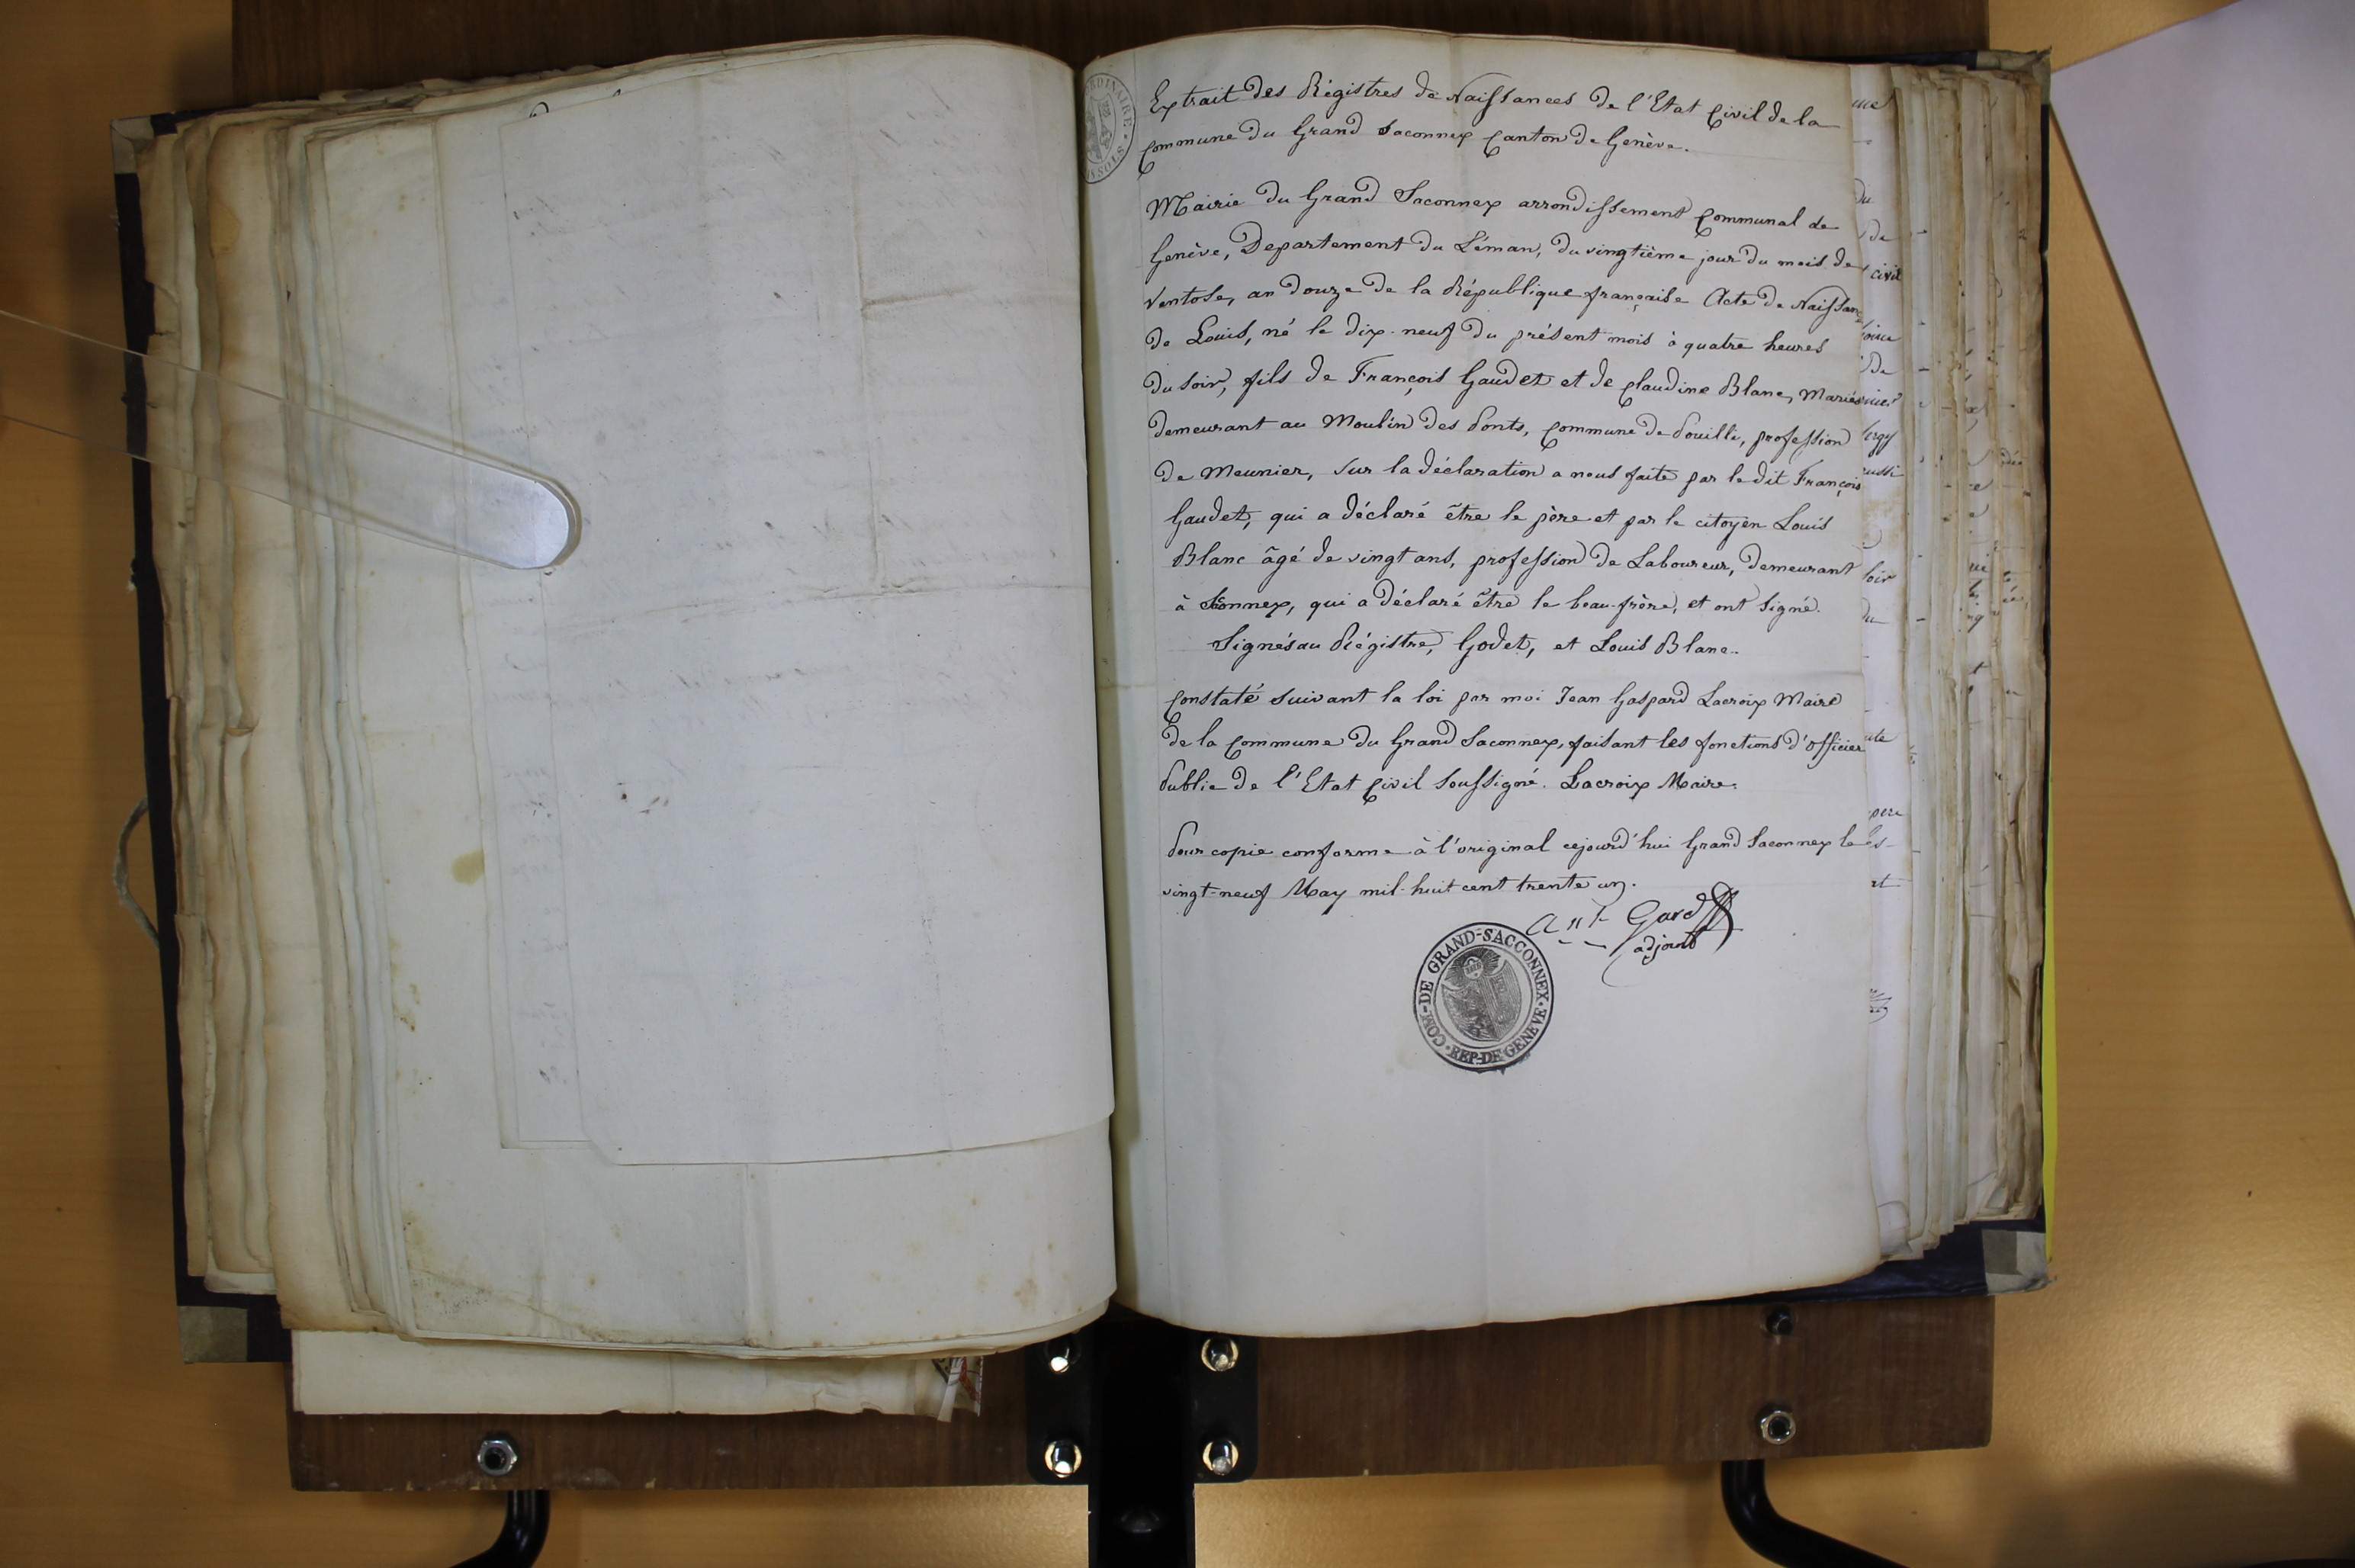 Extrait des Régistres de Naissances de l'Etat Civil de la
Commune du Grand Saconnex Canton de Genève.
Mairie du Grand Saconnex arrondissement Communal de
Genève, Departement du Léman, du vingtième jour du mois de
Ventose, an douze de la République française Acte de Naissan
de Louis, né le dix-neuf du présent mois à quatre heures
du soir, fils de François Gaudet et de Claudine Blanc, Mariés
demeurant au Moulin des Ponts, Commune de Pouilli, profession
de Meunier, sur la déclaration a nous faite par le dit François
Gaudet, qui a déclaré être le père et par le citoyen Louis
Blanc âgé de vingt ans, profession de Laboureur, demeurant
à qui a déclaré être le beau-frère, et ont signé.
Signés au Régistre, Godet, et Louis Blanc.
Constaté suivant la loi par moi Jean Gaspard Lacroix Maire
de la Commune du Grand Saconnex, faisant les fonctions d'officier
Public de l'Etat Civil soussigné. Lacroix Maire.
Pour copie conforme à l'original cejourd'hui Grand Saconnex le
vingt-neuf May mil-huit cent trente un.
Ant Gard
adjoint
COM-DE GRAND-SACCONNEX · REP-DE GENEVE ·